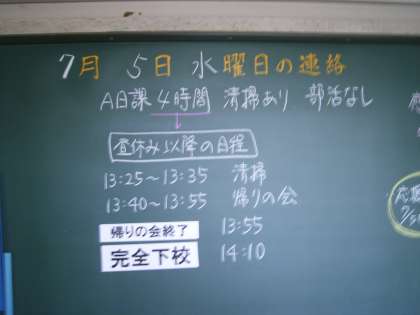 7月 5日 水曜日の連絡
A日課 4時間 清掃あり 部活なし
昼休み以降の日程
13:25～13:35 清掃
13:40～13:55 帰りの会
帰りの会終了 13:55
完全下校 14:10